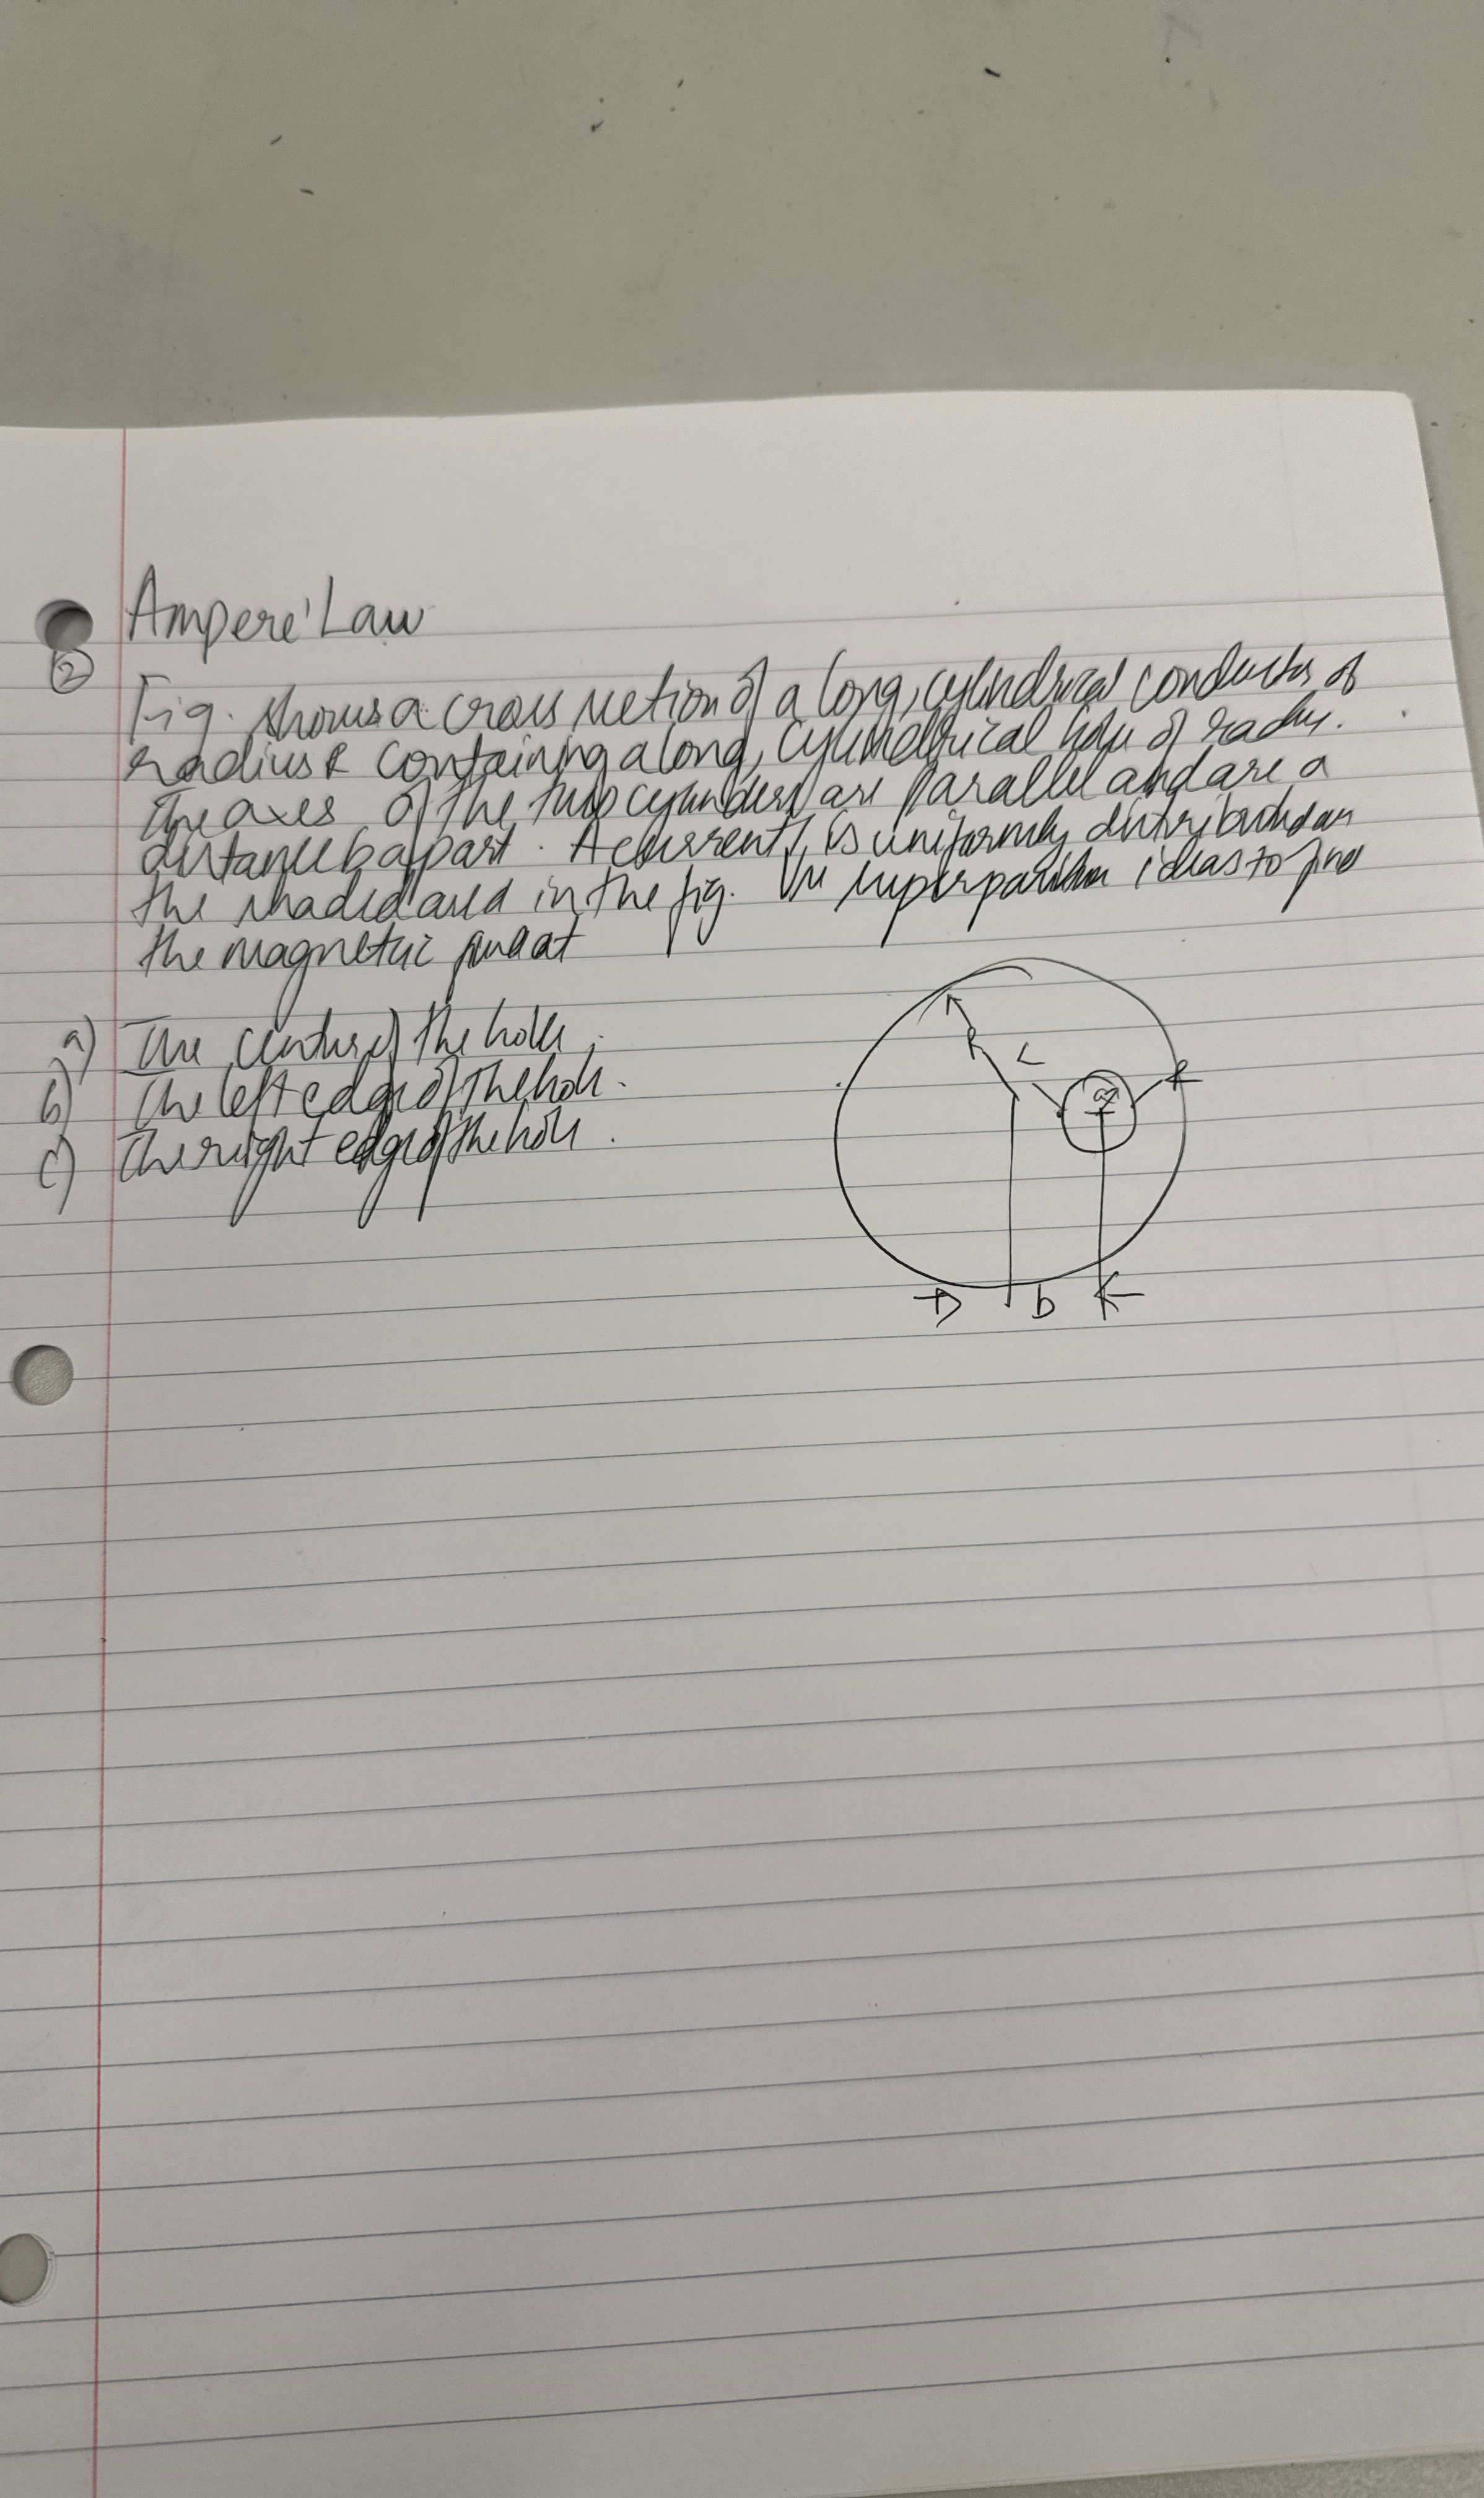 Ampere' Law
②
Fig. shows a cross section of a long, cylindrical conductor of
radius R containing a long, cylindrical hole of radu.
The axes of the two cylinders are parallel and are a
distance b apart. A current, is uniformly distributed on
the shaded area in the fig. Use superposition ideas to find
the magnetic at
a) The centre of the hole.
b) The left edge of the hole.
c) The right edge of the hole.
R
L
R
a
b